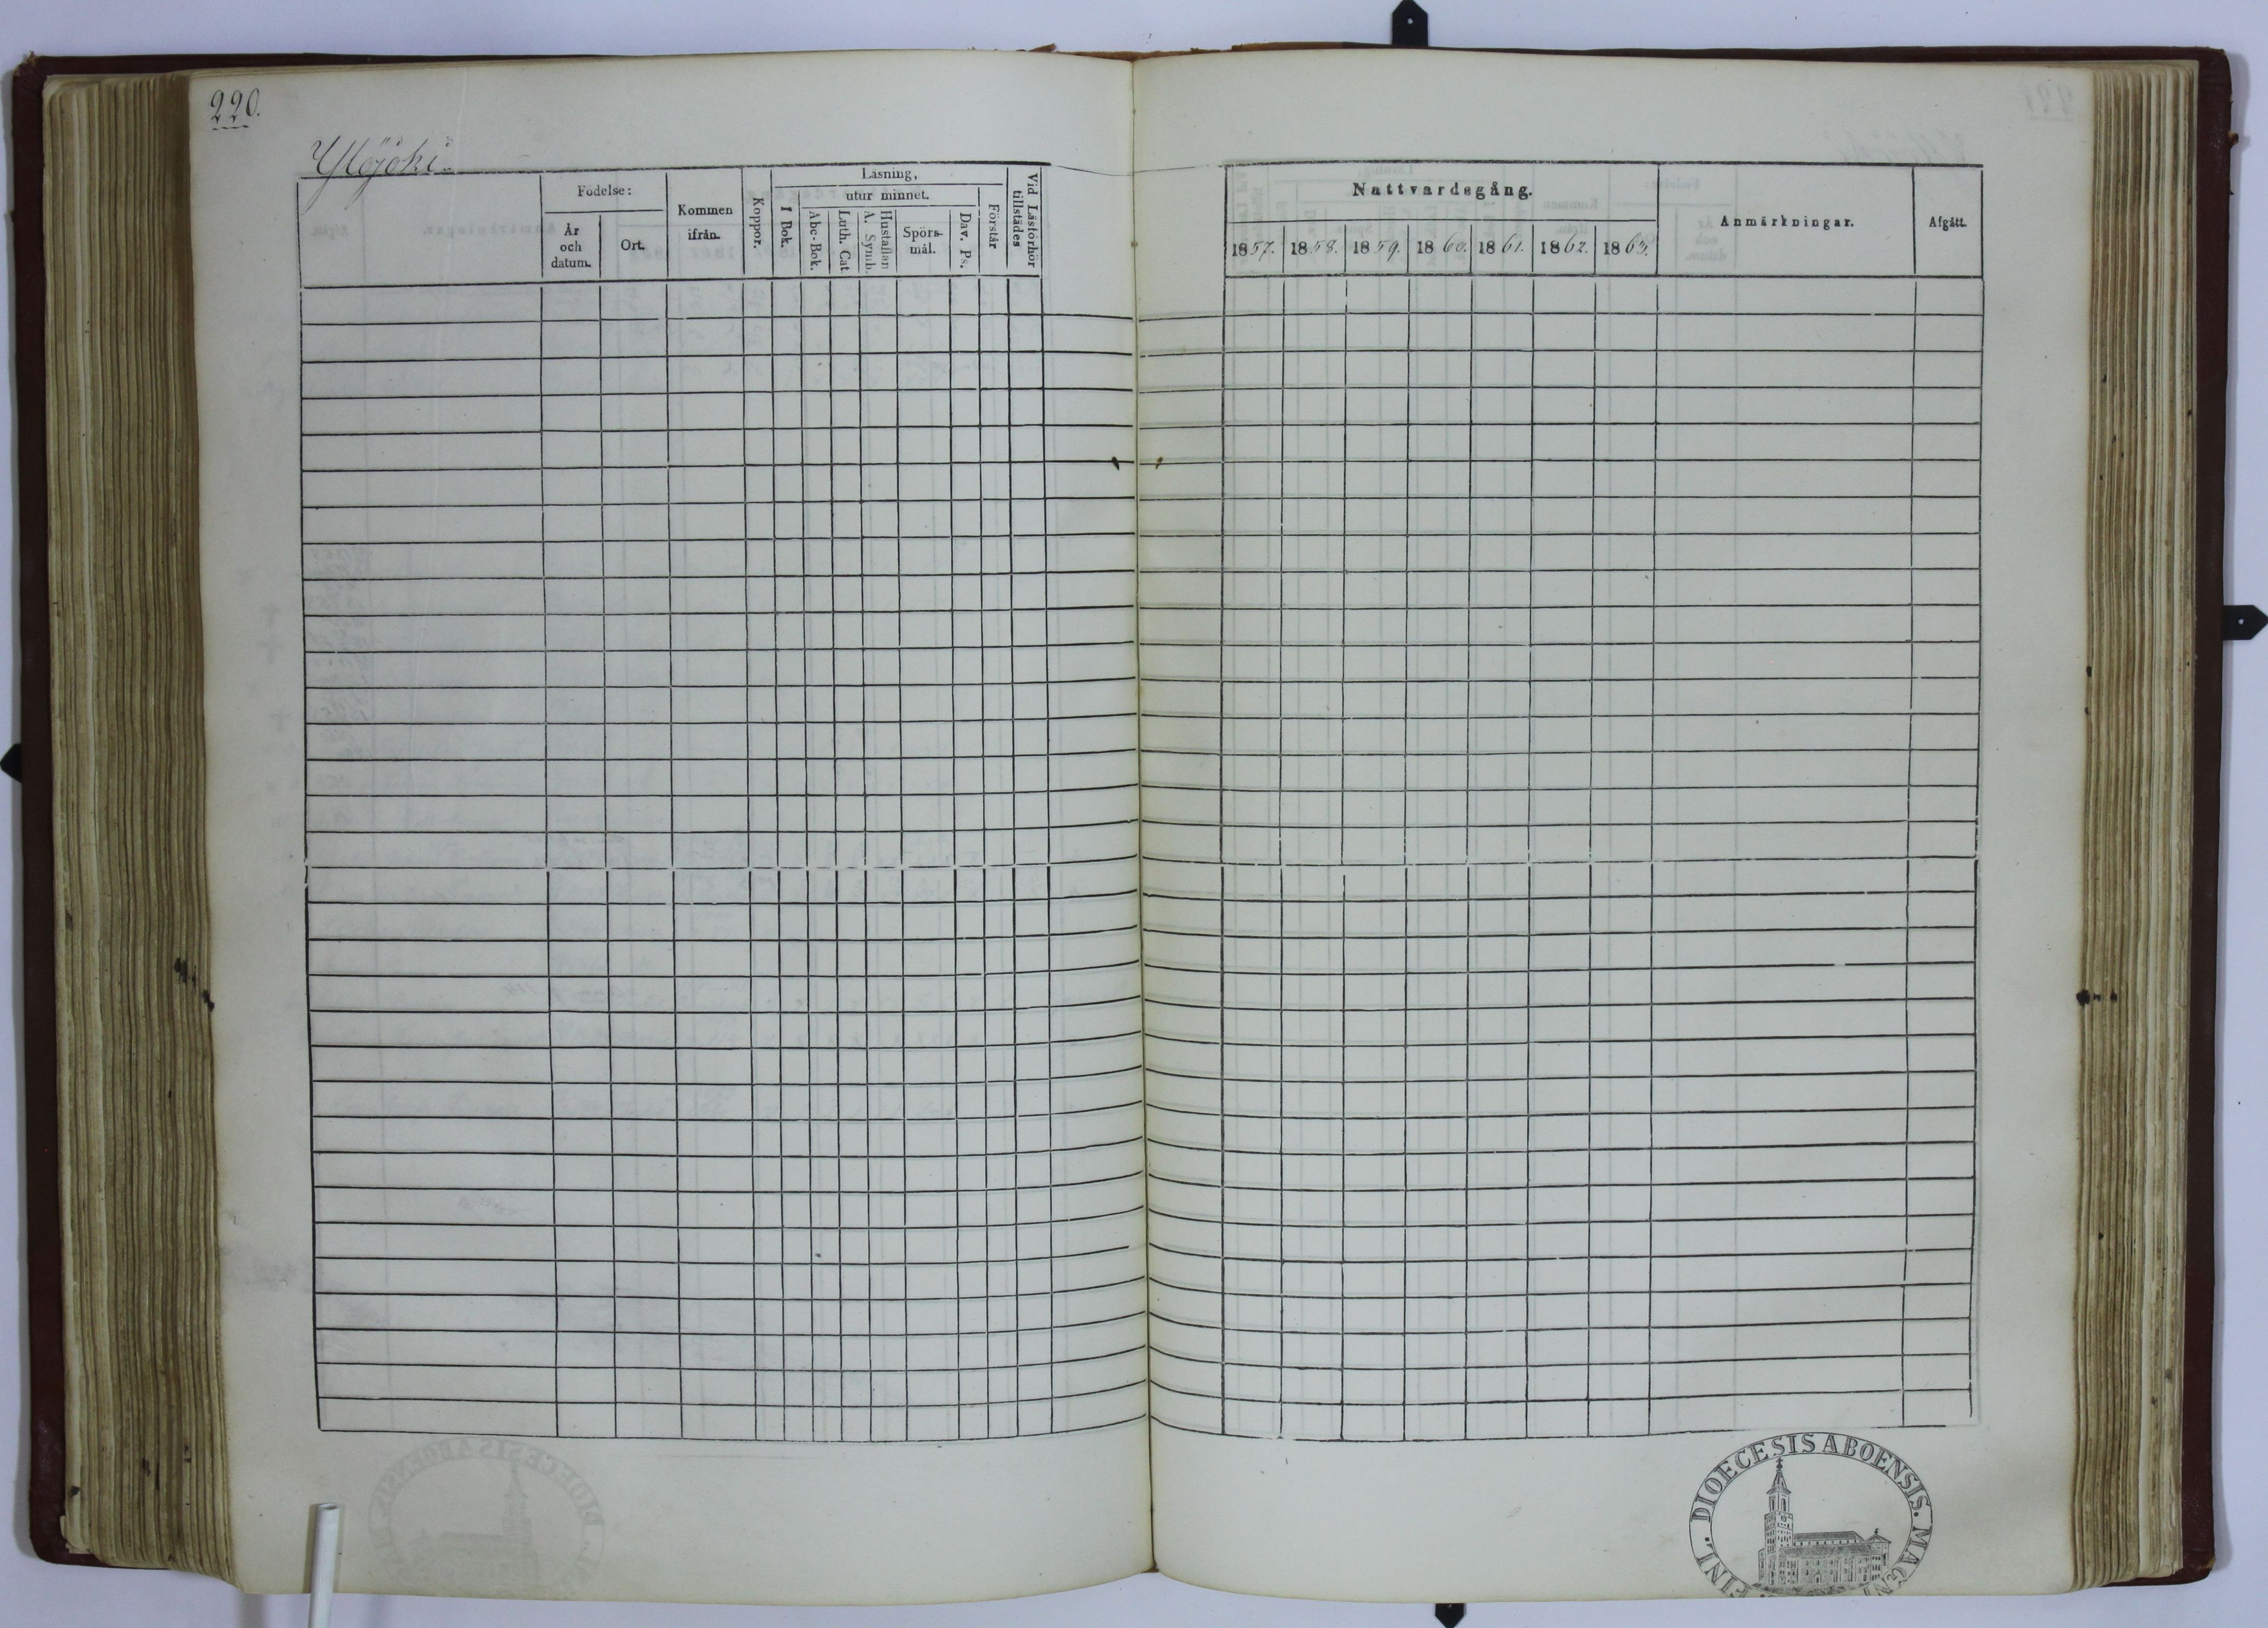 220.
Yläjoki.
Födelse:
År och datum.
Ort.
Kommen ifrån.
Koppor.
Läsning,
I Bok.
utur minnet.
Abc-Bok.
Luth. Cat
Hustaflan A. Symb.
Spörsmål.
Dav. Ps.
Förstår
Vid Läsförhör tillstädes
Nattvardsgång.
1857. 1858. 1859. 1860. 1861. 1862. 1863.
Anmärkningar.
Afgått.
DIOECESIS ABOENSIS. MAGNI
FINL.